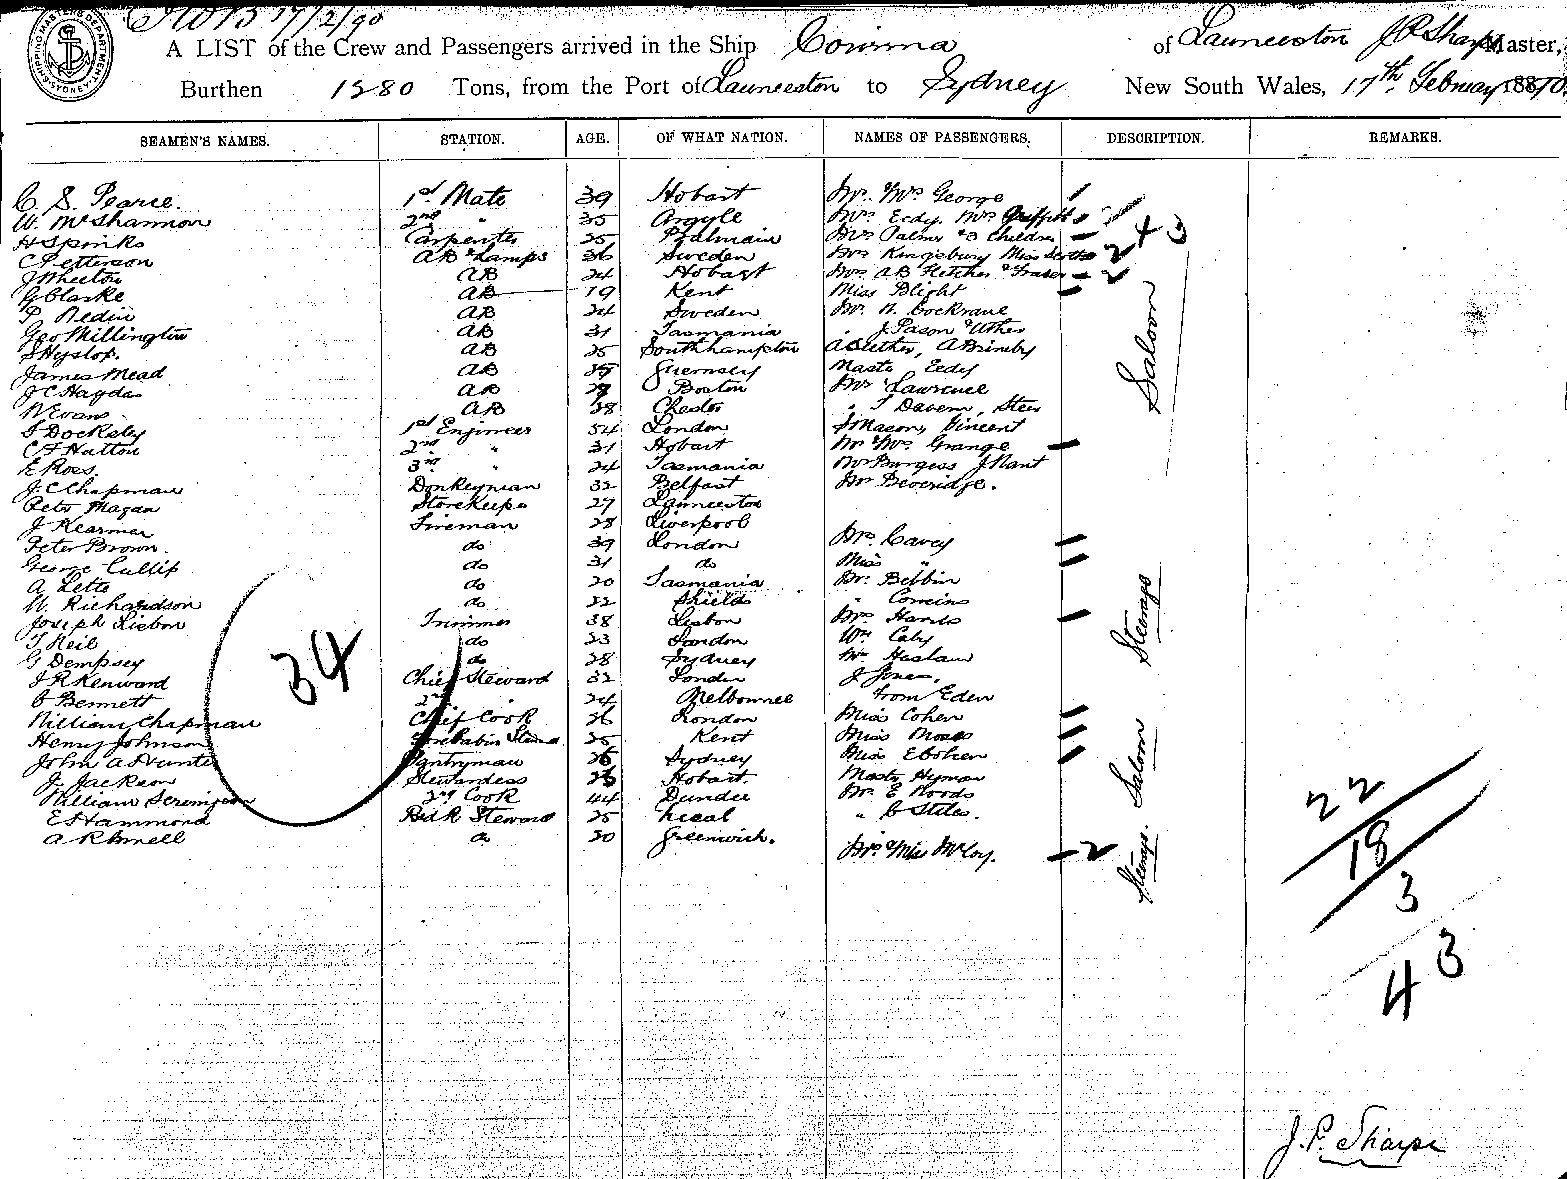 17/2/90
SHIPPING MASTERS DEPARTMENT SYDNEY
A LIST of the Crew and Passengers arrived in the Ship Corinna of Launceston J P Sharpe Master,
Burthen 1280 Tons, from the Port of Launceston to Sydney New South Wales, 17th February 1890
SEAMEN'S NAMES. STATION. AGE. OF WHAT NATION. NAMES OF PASSENGERS. DESCRIPTION. REMARKS.
C. S. Pearce. 1st Mate 39 Hobart Mr. & Mrs George
W. McShannon 2nd " 35 Argyle Mrs Eedy, Mrs Griffiths
H Spinks Carpenter 25 Balmain Mrs Palmer & 3 Children 4
C Petterson AB & Lamps 36 Sweden Mrs Kingsbury Miss 2
J Wheeton AB 24 Hobart Mrs AB Fletcher & Fraser 2
G Clarke AB 19 Kent Miss Blight
P Nedin AB 24 Sweden Mr. N. Cockrane
Geo Millington AB 31 Tasmania " J. Pason & Uther
S Hyslop. AB 25 Southhampton A Brimby
James Mead AB Guernsey Master Eedy
J C Haydas AB Boston Mr Lawrence
W Evans AB 38 Chester " T Davern, Steer
S Docksley 1st Engineer 54 London S Mason, Vincent
C F Hutton 2nd " 31 Hobart Mr & Mrs Grange
E Ross. 3rd " 24 Tasmania Mr Burgess J Nant
J. C Chapman Donkeyman 32 Belfast Mr Beveridge.
Peter Magan Storekeeper 27 Launceston
J Kearmer Fireman 28 Liverpool
Peter Brown. do 39 London Mrs. Cavey
George Cullip do 31 do Miss "
A Lette do 20 Tasmania Mr. Bebbin
W. Richardson do 22 Shields " Comins
Joseph Lisbon Trimmer 38 Lisbon Mrs Harris
T Neil do 23 London Wm Caby
G Dempsey do 28 Sydney Wm Haslam
J R Kenward Chief Steward 32 London J Jones,
C Bennett 2nd " 24 Melbourne from Eden
William Chapman Chief Cook 26 London Miss Cohen
Henry Johnson Forecabin Steward 25 Kent Miss Moses
John A Hunter Pantryman 26 Sydney Miss E Cohen
J. Jackson Stewardess Hobart. Master Hyman
William Scrimgeor 2nd Cook 44 Dundee Mr. E Woods
E Hammond B&R Steward 25 " C Stiles.
do 20 Greenwich. Mrs & Miss McCoy. 2
34
Saloon
Steerage
Saloon
Steerage.
22
18
3
43
J. P. Sharpe